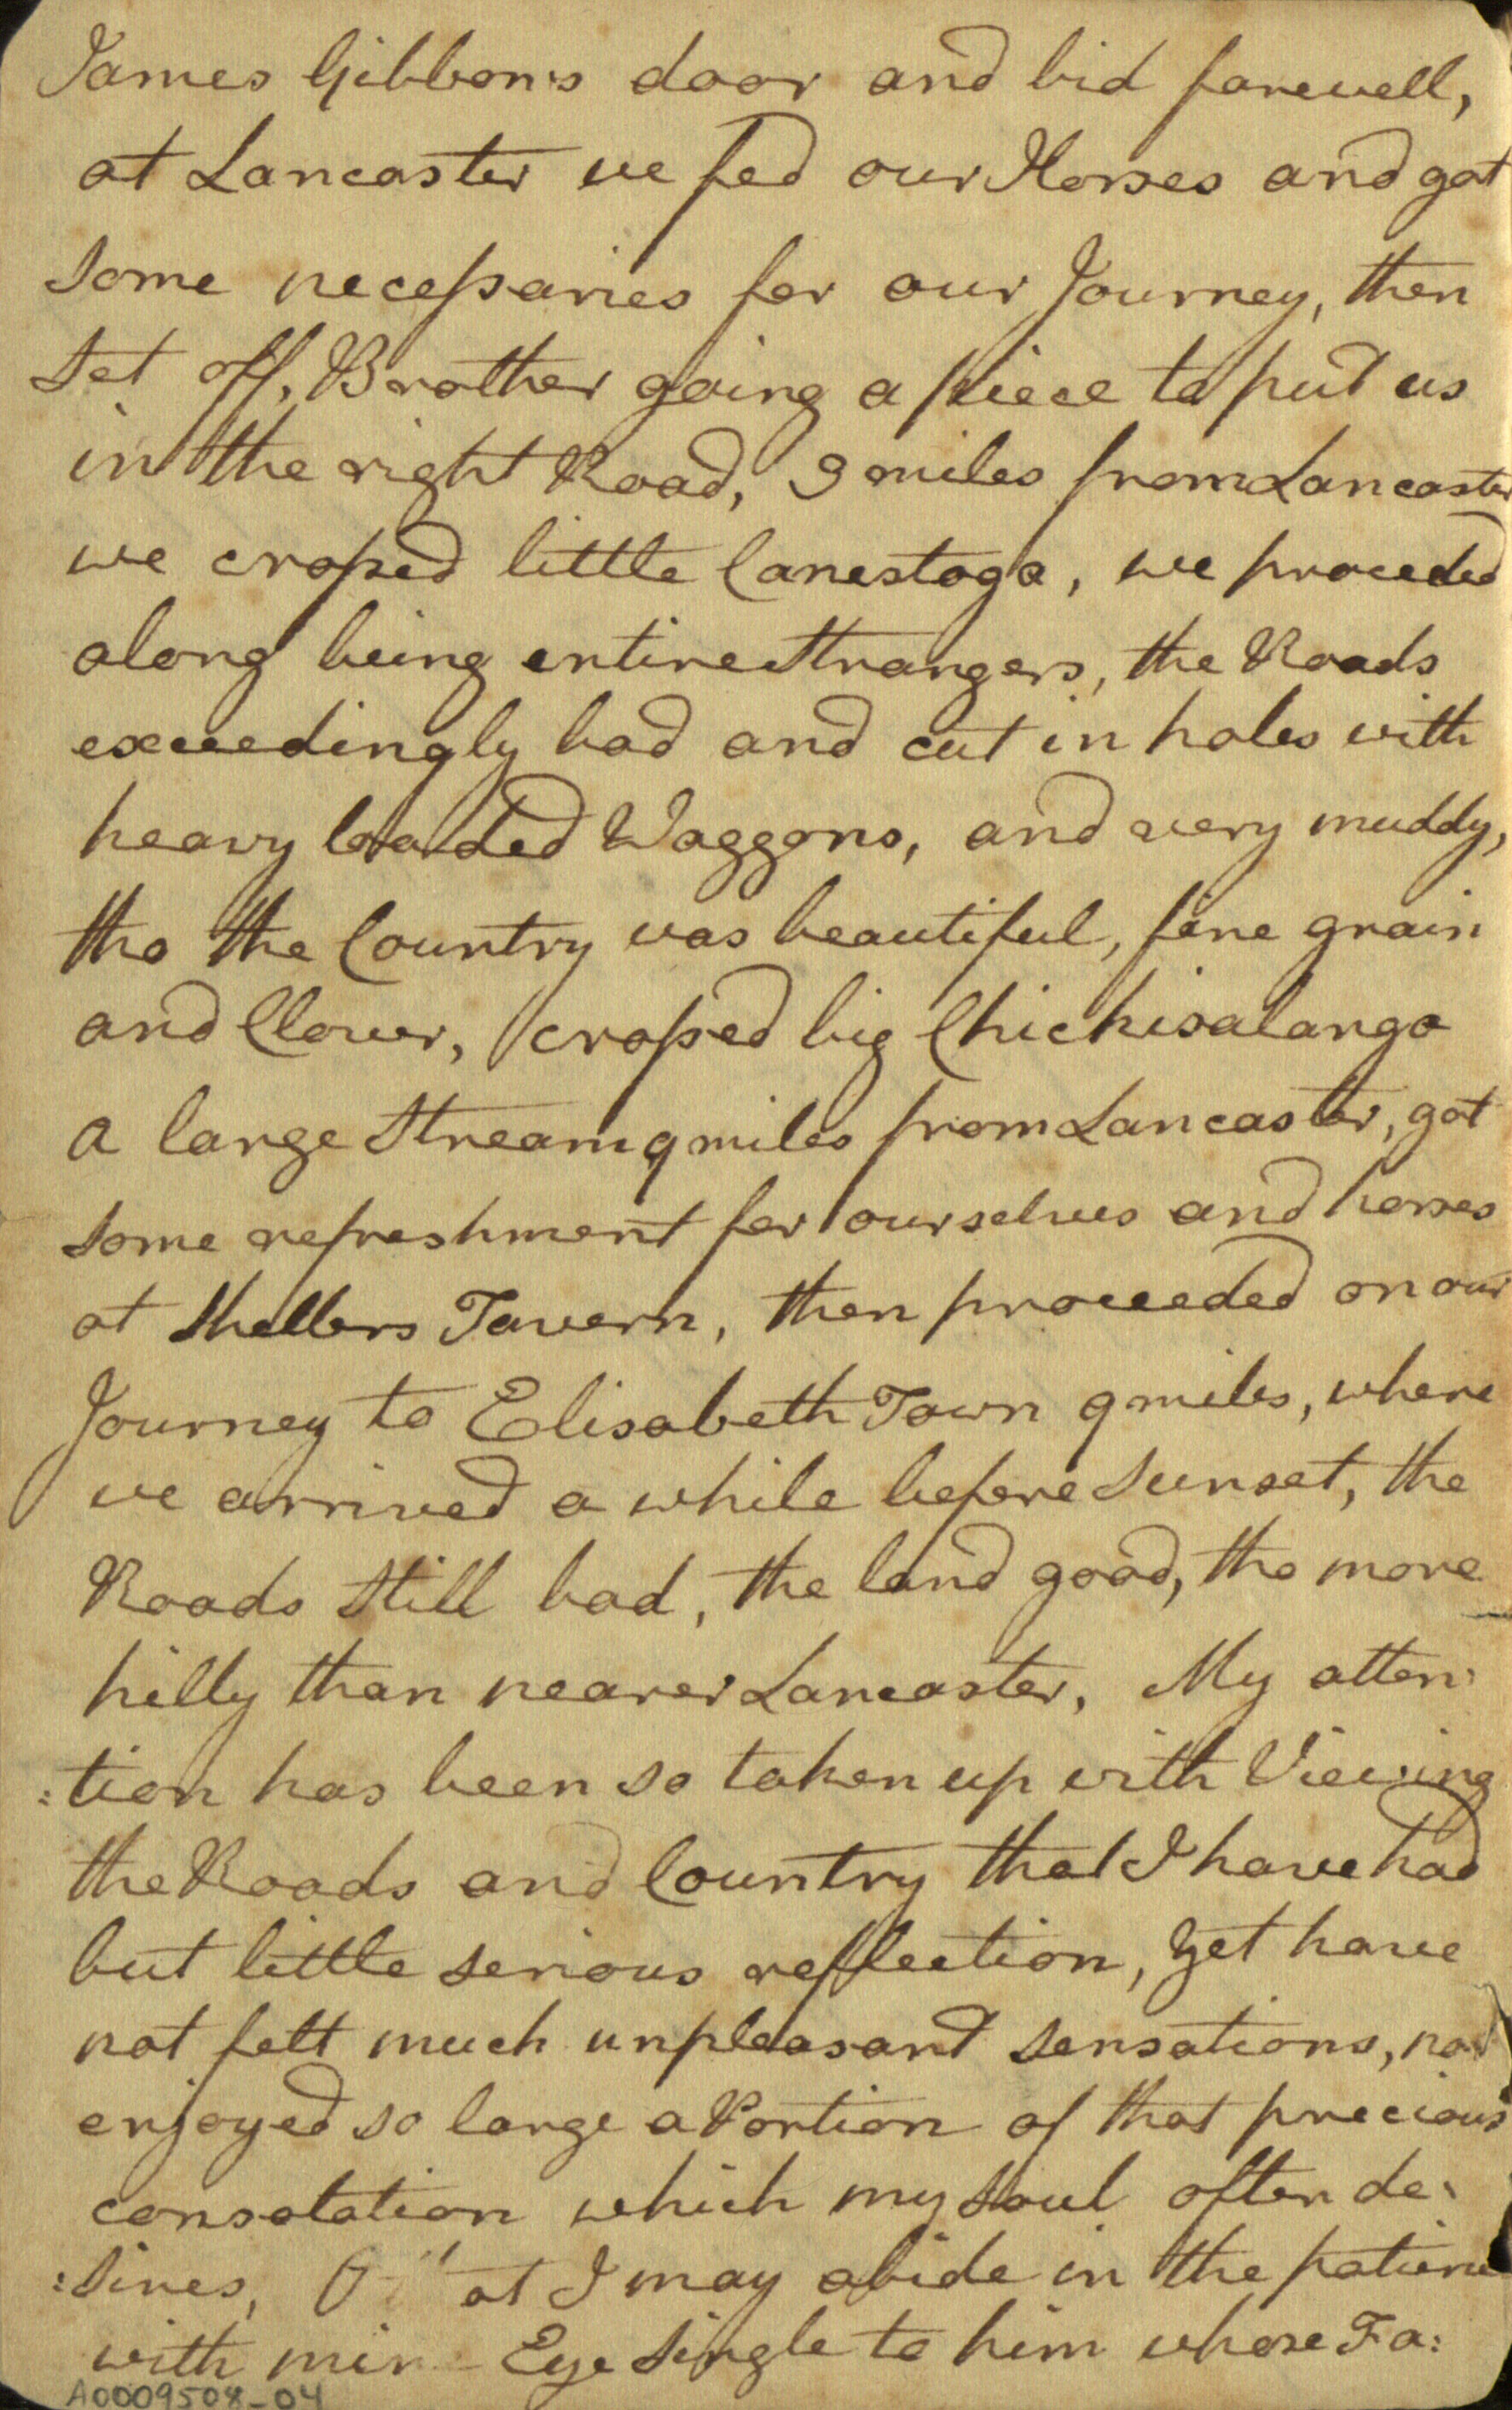 James Gibbons door and bid farewell,
at Lancaster we fed our Horses and got
some necessaries for our Journey, then
set off, Brother going a piece to put us
in the right Road, 3 miles from Lancaster
we crossed little Canestoga, we proceded
along being entire strangers, the Roads
exceedingly bad and cut in holes with
heavy loaded Waggons, and very muddy,
tho the Country was beautiful, fine grain
and Clover, crossed big Chickisalango
a large stream 9 miles from Lancaster, got
some refreshment for ourselves and horses
at Shellers Tavern, then proceeded on our
Journey to Elisabeth Town 9 miles, where
we arrived a while before sunset, the
Roads still bad, the land good, tho more
hilly than nearer Lancaster, My atten:
:tion has been so taken up with Viewing
the Roads and Country that I have had
but little serious reflection, yet have
not felt much unpleasant sensations, nor
enjoyed so large a Portion of that precious
consolation which my soul often de:
:sires, at I may abide in the patience
with Eye single to him whose Fa:
A0009508-04